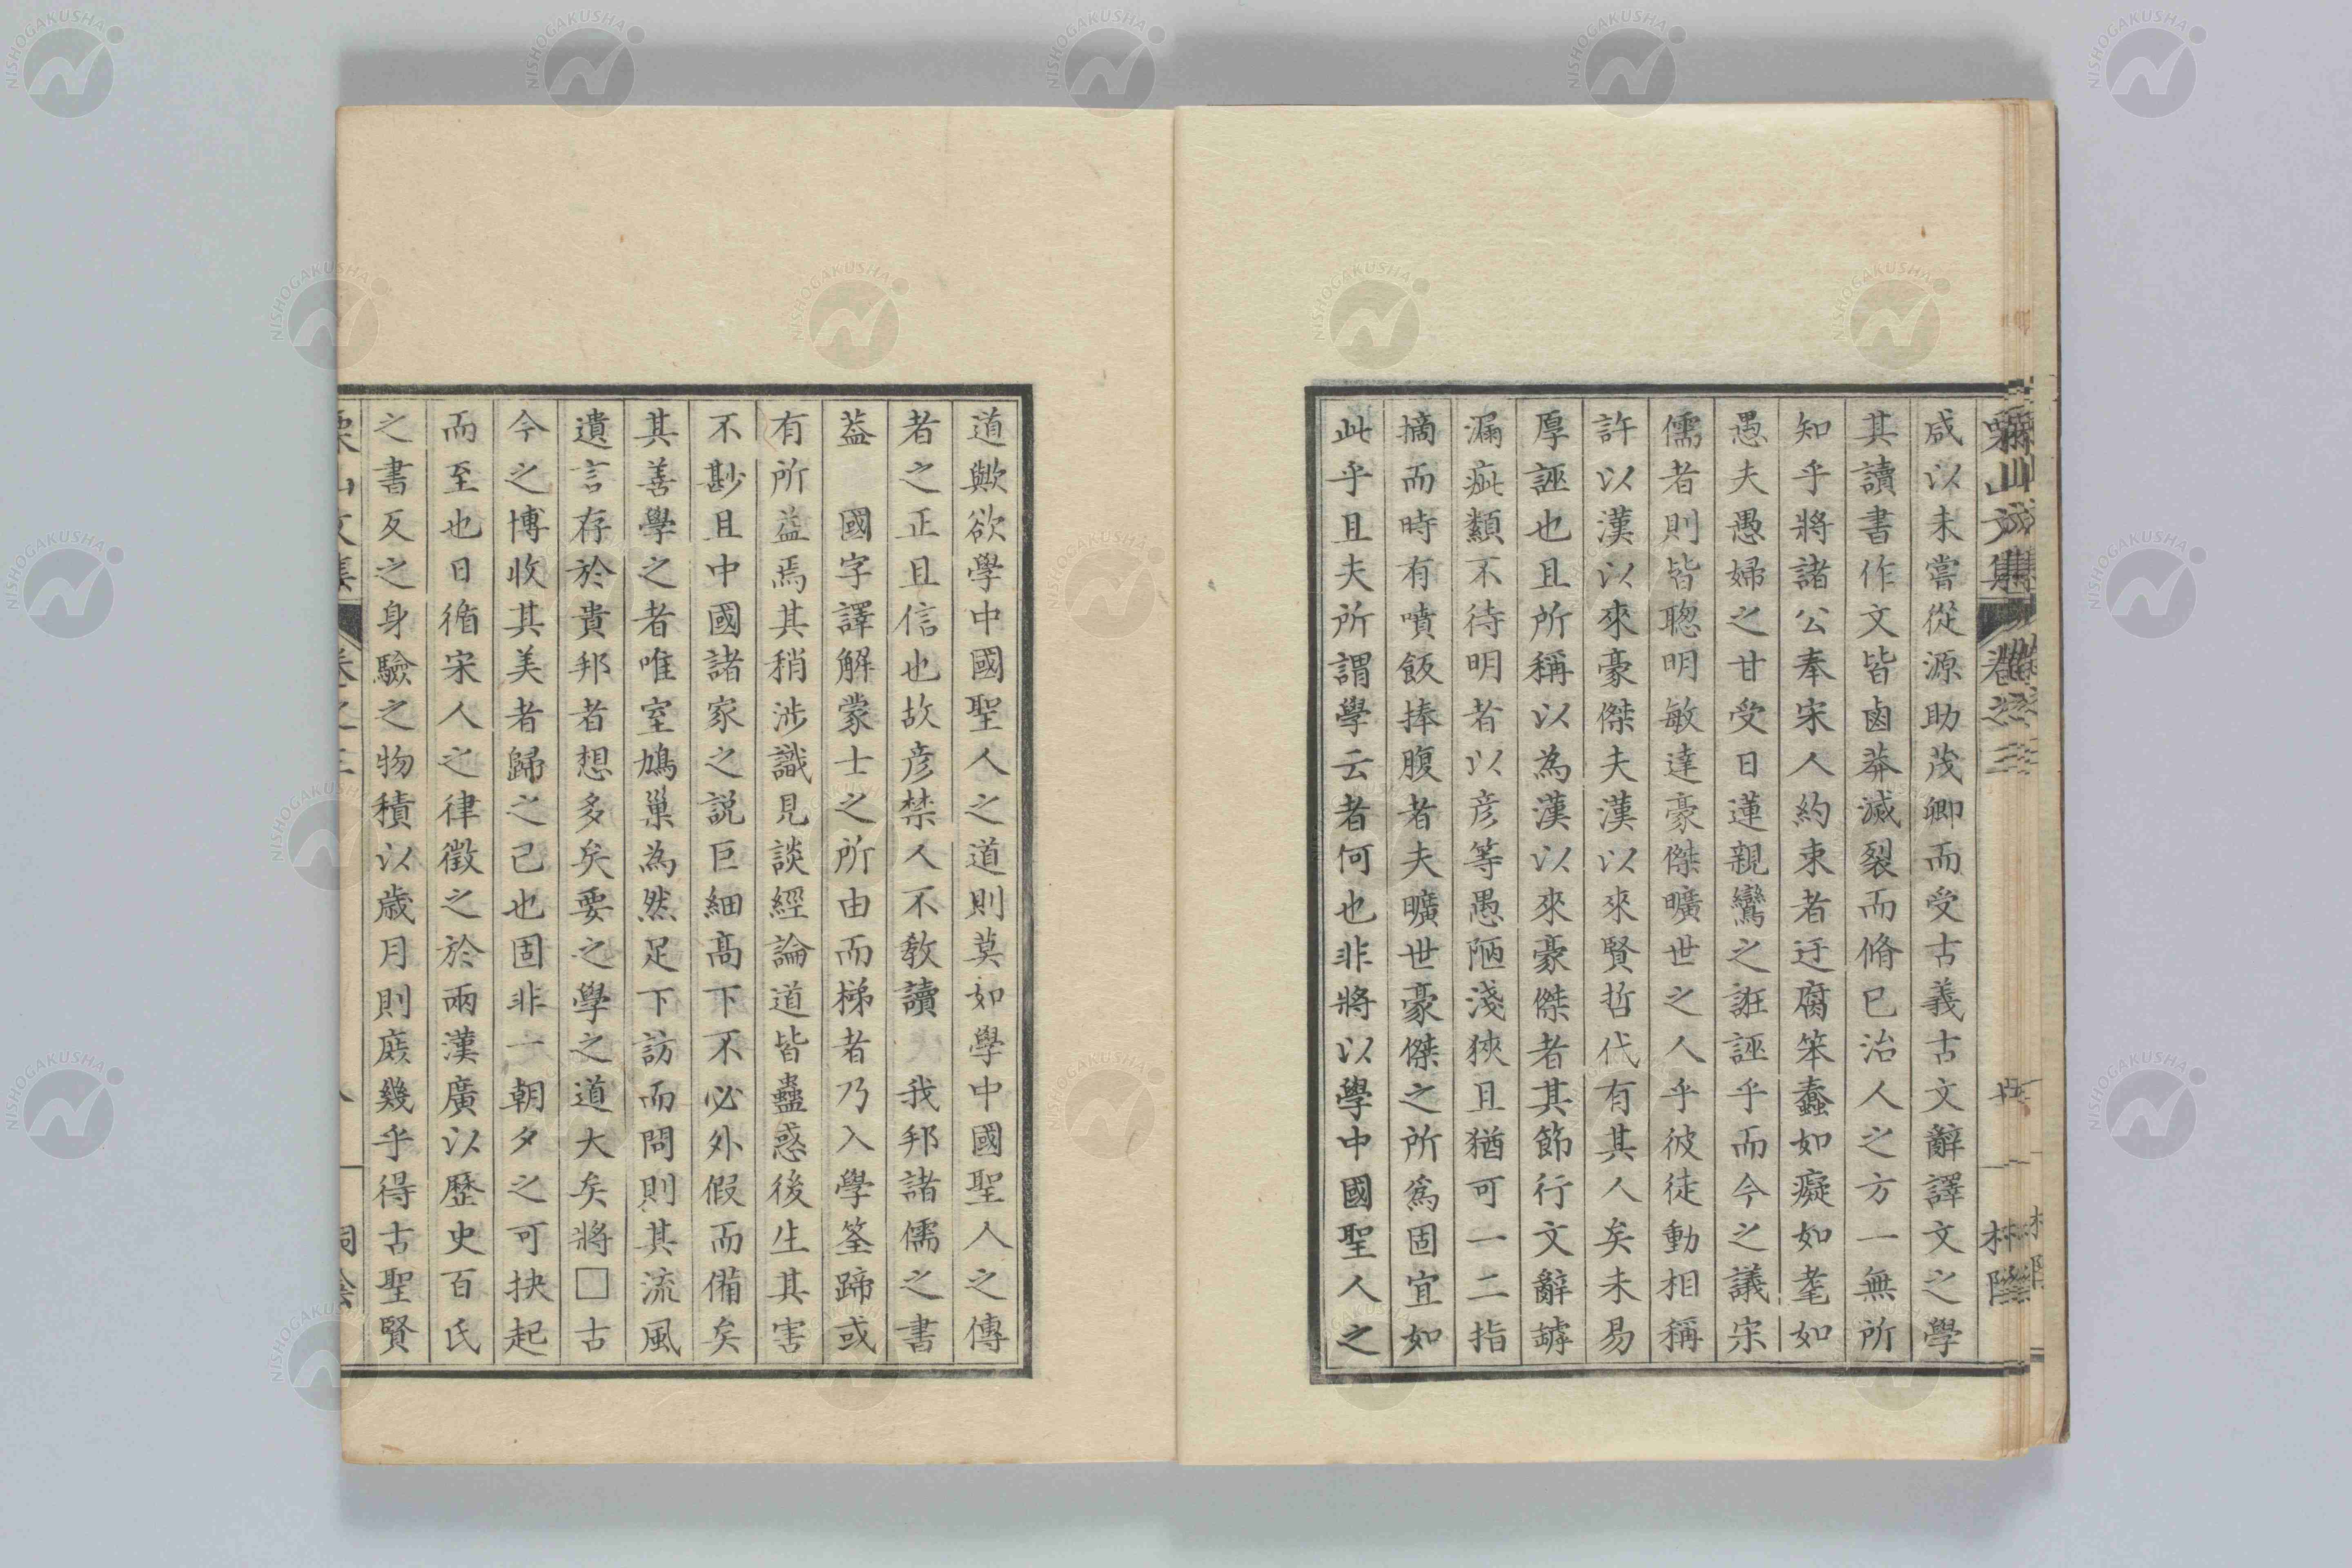 咸以未嘗從源助茂卿而受古義古文辭譯文之學
其讀書作文皆鹵莽滅裂而脩己治人之方一無所
知乎將諸公奉宋人約束者迂腐笨蠢如癡如耄如
愚夫愚婦之甘受日蓮親鸞之誑誣乎而今之議宋
儒者則皆聰明敏達豪傑曠世之人乎彼徒動相稱
許以漢以來豪傑夫漢以來賢哲代有其人矣未易
厚誣也且所稱以為漢以來豪傑者其節行文辭罅
漏疵纇不待明者以彦等愚陋淺狹且猶可一二指
摘而時有噴飯捧腹者夫曠世豪傑之所爲固宜如
此乎且夫所謂學云者何也非將以學中國聖人之
道歟欲學中國聖人之道則莫如學中國聖人之傳
者之正且信也故彦禁人不敎讀 我邦諸儒之書
葢 國字譯解蒙士之所由而梯者乃入學筌蹄或
有所益焉其稍涉識見談經論道皆蠱惑後生其害
不尠且中國諸家之説巨細高下不必外假而備矣
其善學之者唯室鳩巢為然足下訪而問則其流風
遺言存於貴邦者想多矣要之學之道大矣將□古
今之博收其美者歸之己也固非一朝夕之可抉起
而至也日循宋人之律徵之於兩漢廣以歷史百氏
之書反之身驗之物積以歲月則庶幾乎得古聖賢
栗山文集 卷之三
NISHOGAKUSHA